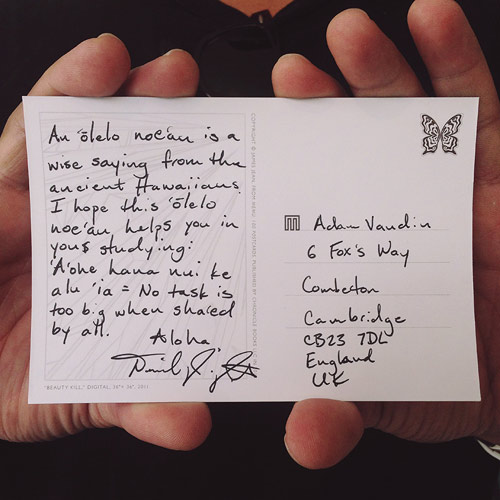 An 'ōlelo noe'au is a
wise saying from the
ancient Hawaiians.
I hope this 'ōlelo
noe'au, helps you in
your studying:
'A'ohe hana nui ke
alu 'ia = No task is
too big when shared
by all.
Aloha
"BEAUTY KILL," DIGITAL, 20"X 26", 2011
Adam Vaudin
6 Fox's Way
Comberton
Cambridge
CB23 7DL
England
UK